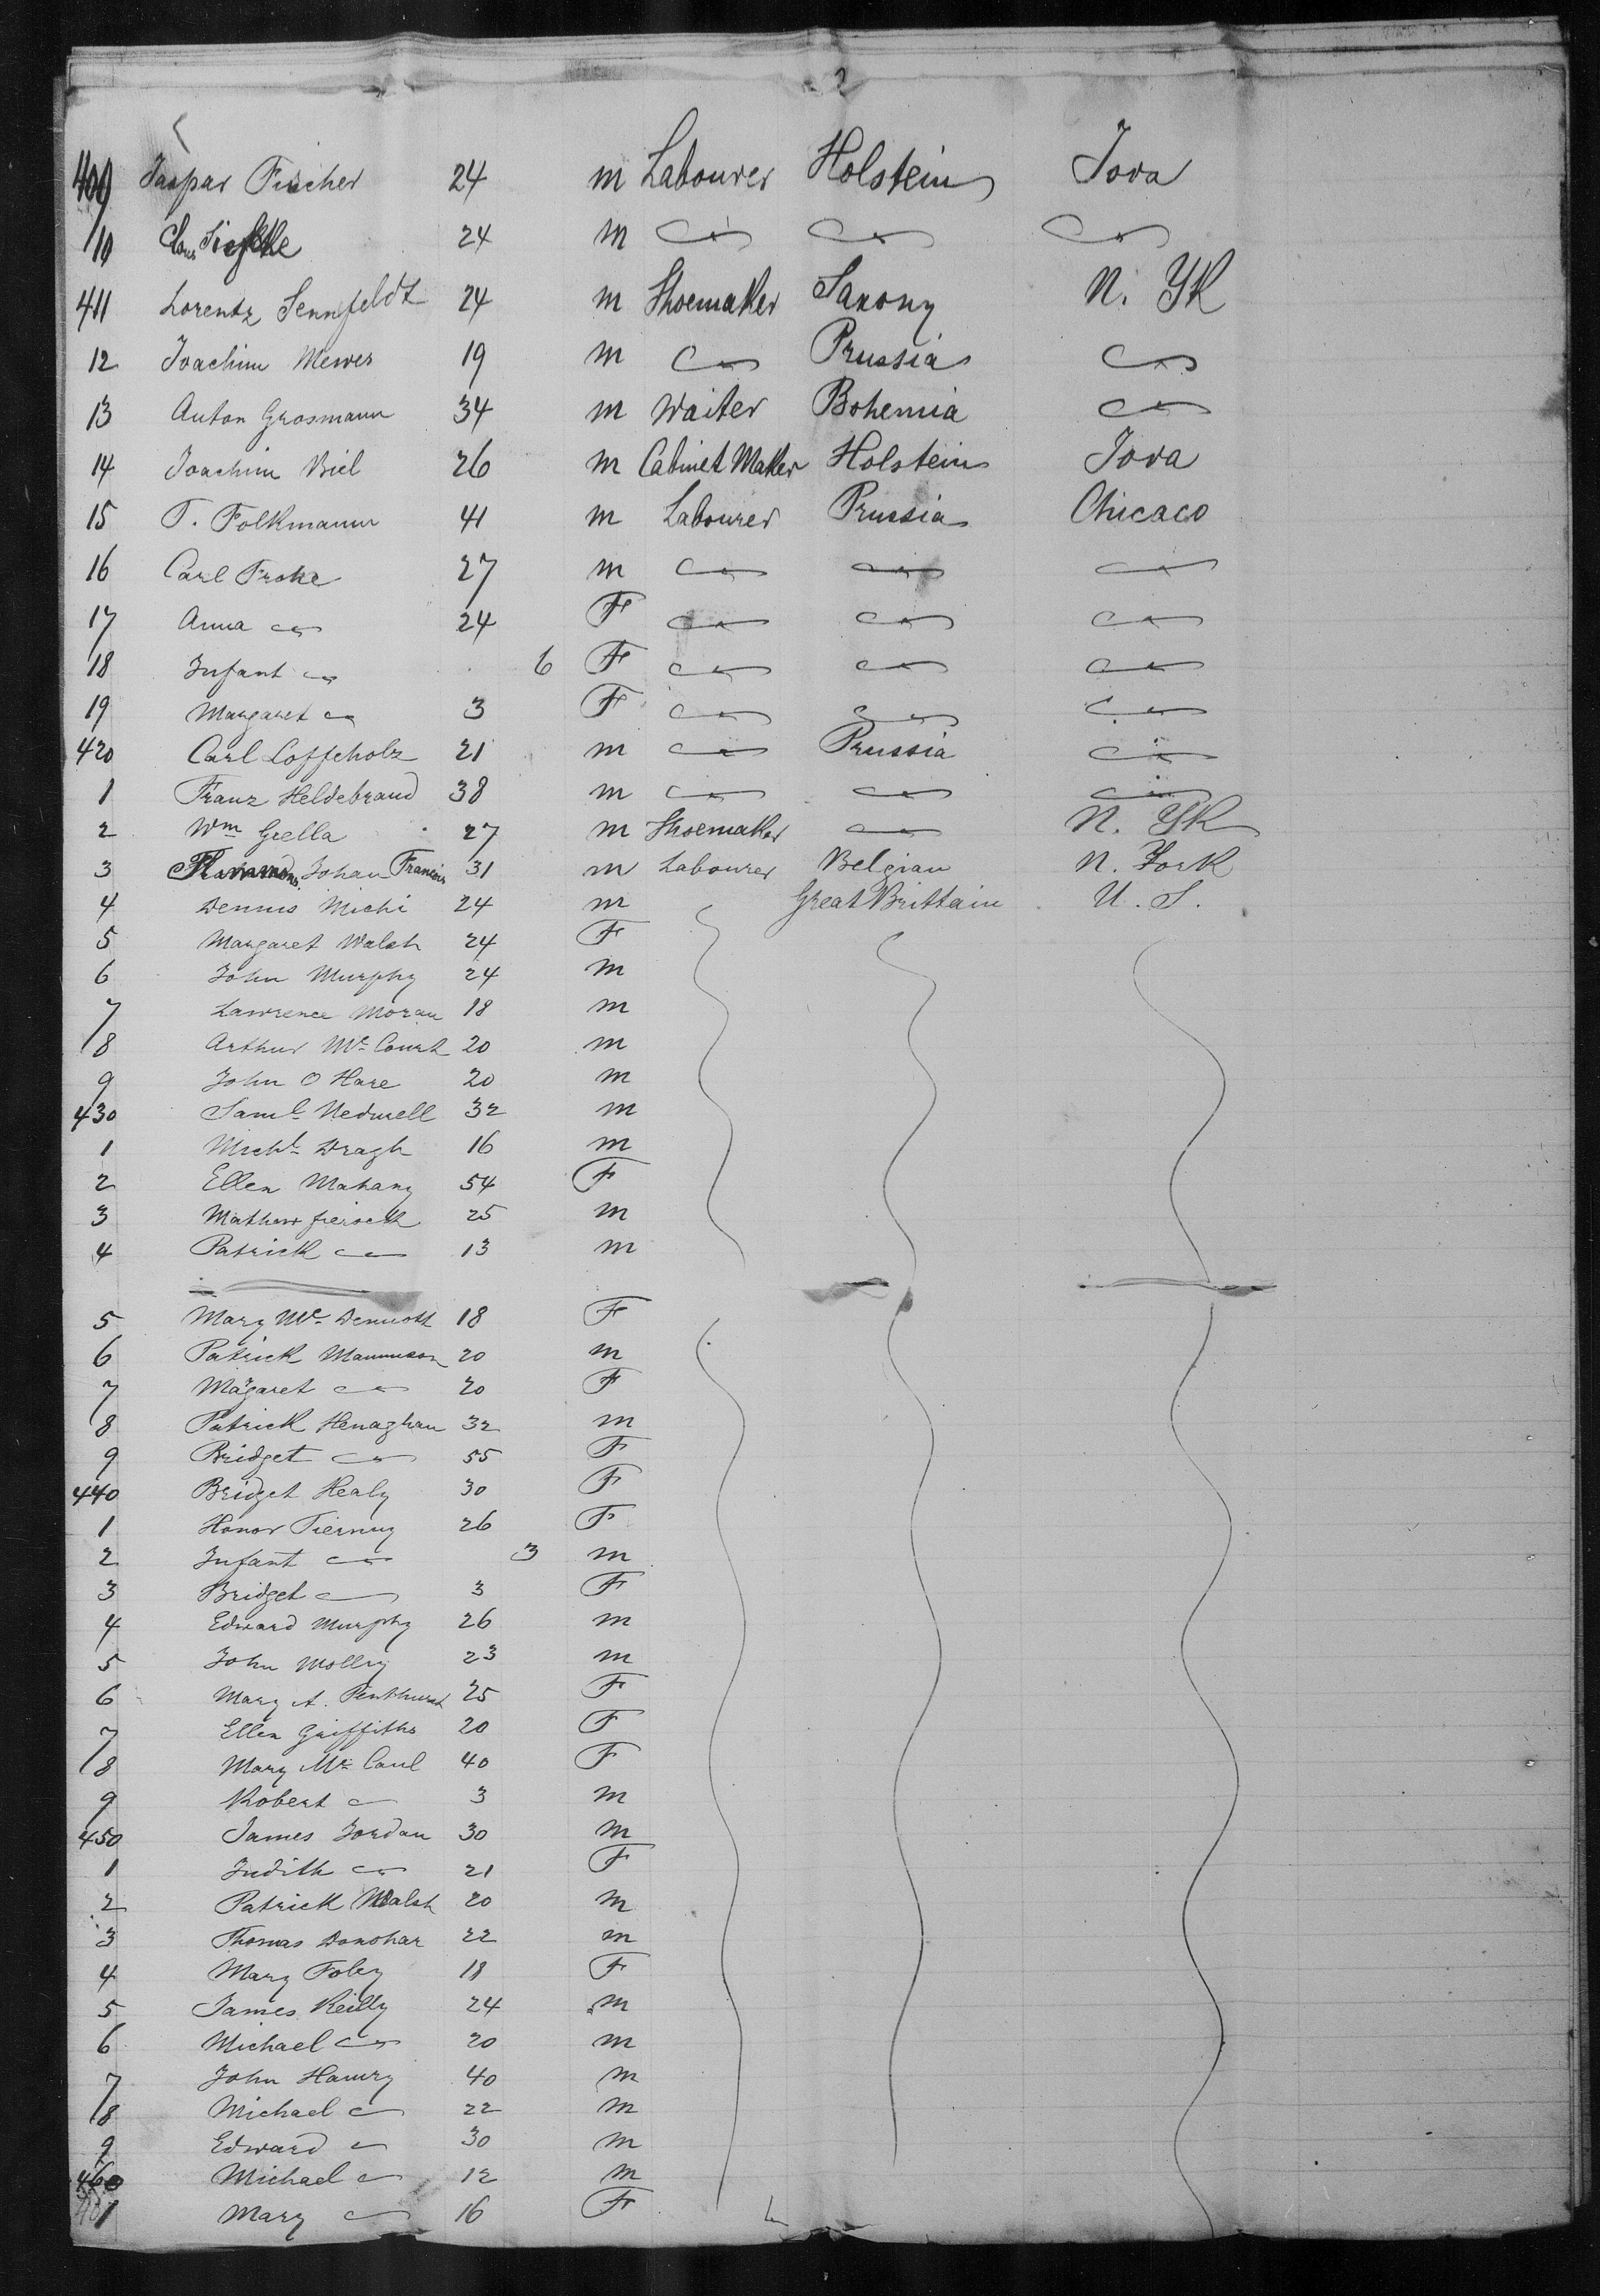 2
409 Jaspar Fischer 24 m Labourer Holstein Iova
10 Claus 24 m
411 Lorentz Sennfeldt 24 m Shoemaker Saxony N. YK
12 Joachim Mewes 19 m Prussia
13 Anton Grosmann 34 m Waiter Bohemia
14 Joachim Biel 26 m Cabinet Maker Holstein Iova
15 T. Folkmann 41 m Labourer Prussia Chicaco
16 Carl Frohe 27 m
17 Anna 24 F
18 Infant 6 F
19 Margaret 3 F
420 Carl Loffeholz 21 m Prussia
1 Franz Heldebrand 38 m
2 Wm Grella 27 m Shoemaker N. YK
3 Johan Francois 31 m Labourer Belgian N. York
4 Dennis Michi 24 m Great Brittain U. S.
5 Margaret Walsh 24 F
6 John Murphy 24 m
7 Lawrence Moran 18 m
8 Arthur Mc Court 20 m
9 John O Hare 20 m
430 Saml Nedwell 32 m
1 Michl Dragh 16 m
2 Ellen Mahany 54 F
3 Mathew 25 m
4 Patrick 13 m
5 Mary Mc Dermott 18 F
6 Patrick Mannuson 20 m
7 Magaret 20 F
8 Patrick Henaghan 32 m
9 Bridget 55 F
440 Bridget Healy 30 F
1 Honor Tierney 26 F
2 Infant 3 m
3 Bridget 3 F
4 Edward Murphy 26 m
5 John Molloy 23 m
6 Mary A. Penthurst 25 F
7 Ellen Griffiths 20 F
8 Mary Mc Caul 40 F
9 Robert 3 m
450 James Jordan 30 m
1 Judith 21 F
2 Patrick Walsh 20 m
3 Thomas Donohar 22 m
4 Mary Foley 18 F
5 James Reilly 24 m
6 Michael 20 m
7 John Hawry 40 m
8 Michael 22 m
9 Edward 30 m
460 Michael 12 m
1 Mary 16 F